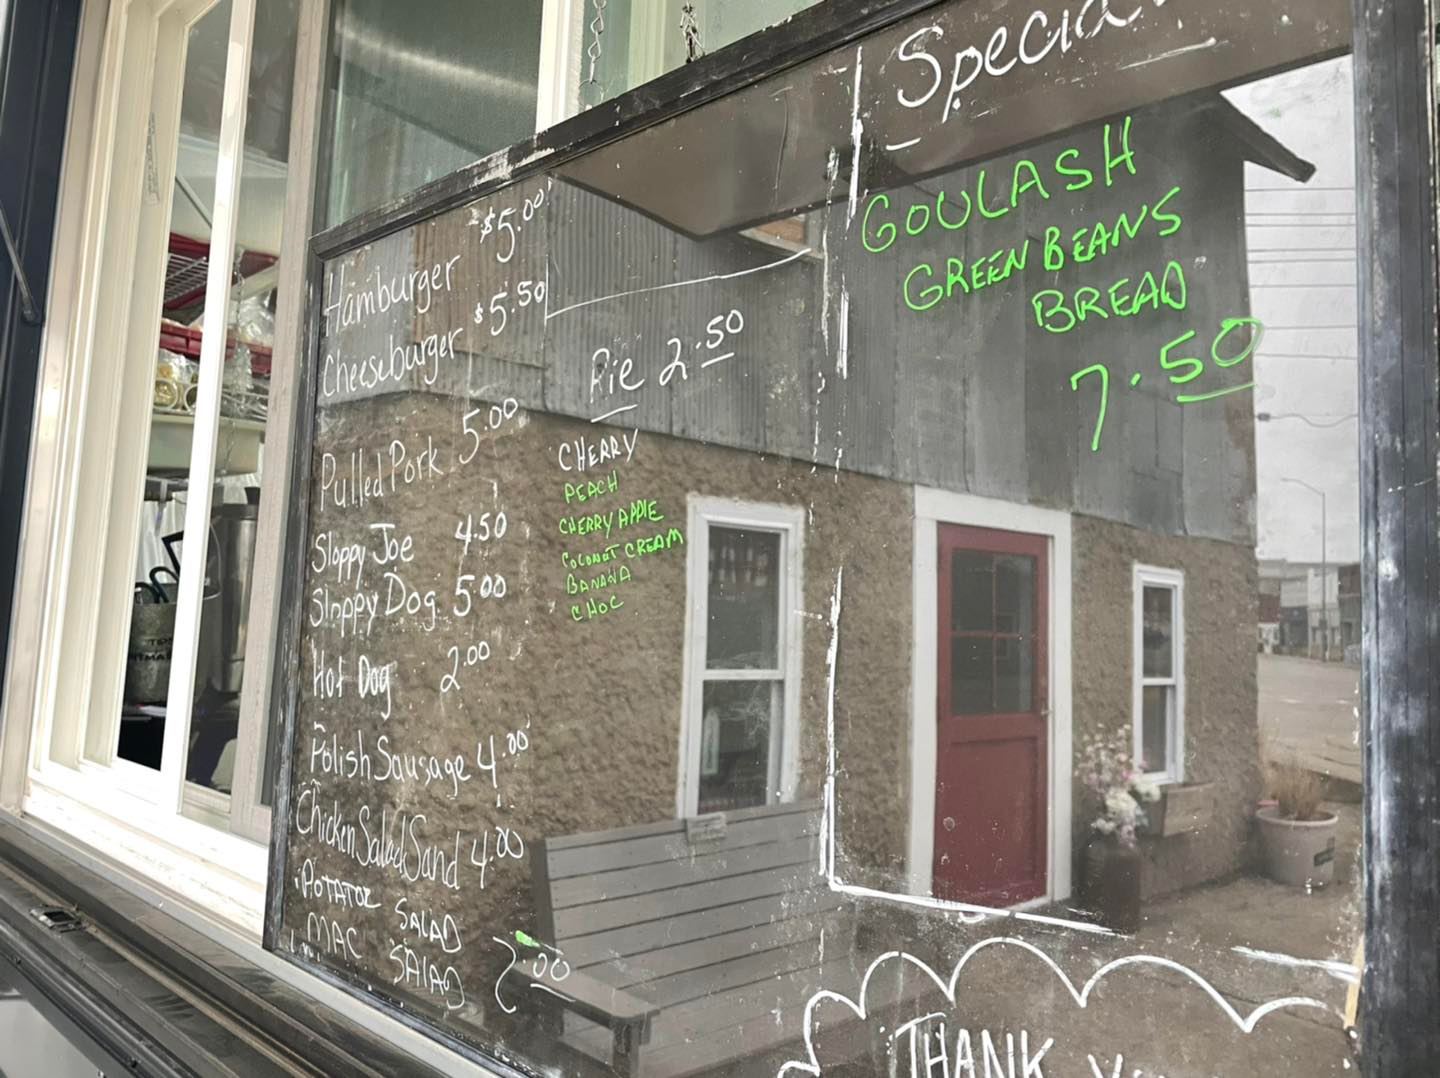 Hamburger $5.00
Cheeseburger $5.50
Pulled Pork 5.00
Sloppy Joe 4.50
Sloppy Dog 5.00
Hot Dog 2.00
Polish Sausage 4.00
Chicken Salad Sand 4.00
POTATOE SALAD
MAC SALAD 2.00
Pie 2.50
CHERRY
PEACH
CHERRY APPLE
COCONUT CREAM
BANANA
CHOC
Special
GOULASH
GREEN BEANS
BREAD
7.50
THANK